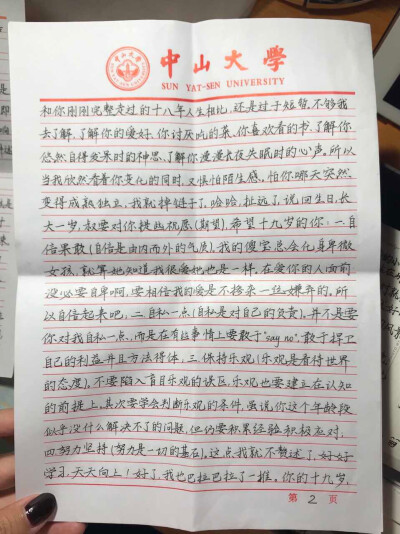 中山大學
SUN YAT-SEN UNIVERSITY
和你刚刚完整走过的十八年人生相比,还是过于短暂,不够我
去了解,了解你的爱好、你讨厌吃的菜、你喜欢看的书,了解你
悠然自得发呆时的神思、了解你漫漫长夜失眠时的心声。所以
当我欣然看着你变化的同时,又惧怕陌生感,怕你哪天突然
变得成熟独立,我就掉链子了,哈哈,扯远了,说回生日,长
大一岁,叔要对你提出祝愿(期望),希望十九岁的你:一.自
信果敢(自信是由内而外的气质),我的傻宝总会化身卑微
女孩,就算她知道我很爱他也是一样,在爱你的人面前
没必要自卑啊,要相信我的爱是不掺杂一丝嫌弃的,所
以自信起来吧,二.自私一点(自私是对自己的负责),并不是要
你对我自私一点,而是在有些事情上要敢于"say no",敢于捍卫
自己的利益并且方法得体,三.保持乐观(乐观是看待世界
的态度),不要陷入盲目乐观的误区,乐观也要建立在认知
的前提上,其次要学会判断乐观的条件,虽说,你这个年龄段
似乎没什么解决不了的问题,但仍要积累经验积极应对,
四.努力坚持(努力是一切的基石),这点我就不赘述了,好好
学习,天天向上!好了,我也巴拉巴拉了一推。你的十九岁,
第 2 页